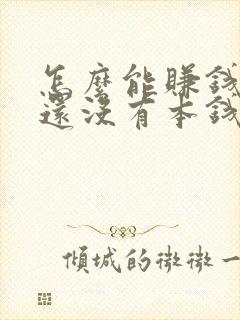 怎麼能賺錢
還沒有本錢
傾城的微微一